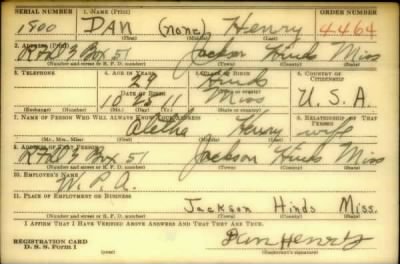 SERIAL NUMBER 1. NAME (Print) ORDER NUMBER
1900 DAN (none) Henry 4464
2. ADDRESS (Print)
RFD 3 Box 51 Jackson Hinds Miss
(Number and street or R. F. D. number) (Town) (County) (State)
3. TELEPHONE 4. AGE IN YEARS 5. PLACE OF BIRTH 6. COUNTRY OF CITIZENSHIP
Hinds
DATE OF BIRTH (Town or county)
10 25 11 Miss U. S. A.
(Exchange) (Number) (Mo.) (Day) (Yr.) (State or country)
7. NAME OF PERSON WHO WILL ALWAYS KNOW YOUR ADDRESS 8. RELATIONSHIP OF THAT PERSON
Aletha Henry wife
(Mr., Mrs., Miss) (First) (Middle) (Last)
9. ADDRESS OF THAT PERSON
RFD 3 Box 51 Jackson Hinds Miss
(Number and street or R. F. D. number) (Town) (County) (State)
10. EMPLOYER'S NAME
W. P. A.
11. PLACE OF EMPLOYMENT OR BUSINESS
Jackson Hinds Miss.
(Number and street or R. F. D. number) (Town) (County) (State)
I AFFIRM THAT I HAVE VERIFIED ABOVE ANSWERS AND THAT THEY ARE TRUE.
REGISTRATION CARD
D. S. S. Form 1 Dan Henry
(over) (Registrant's signature)